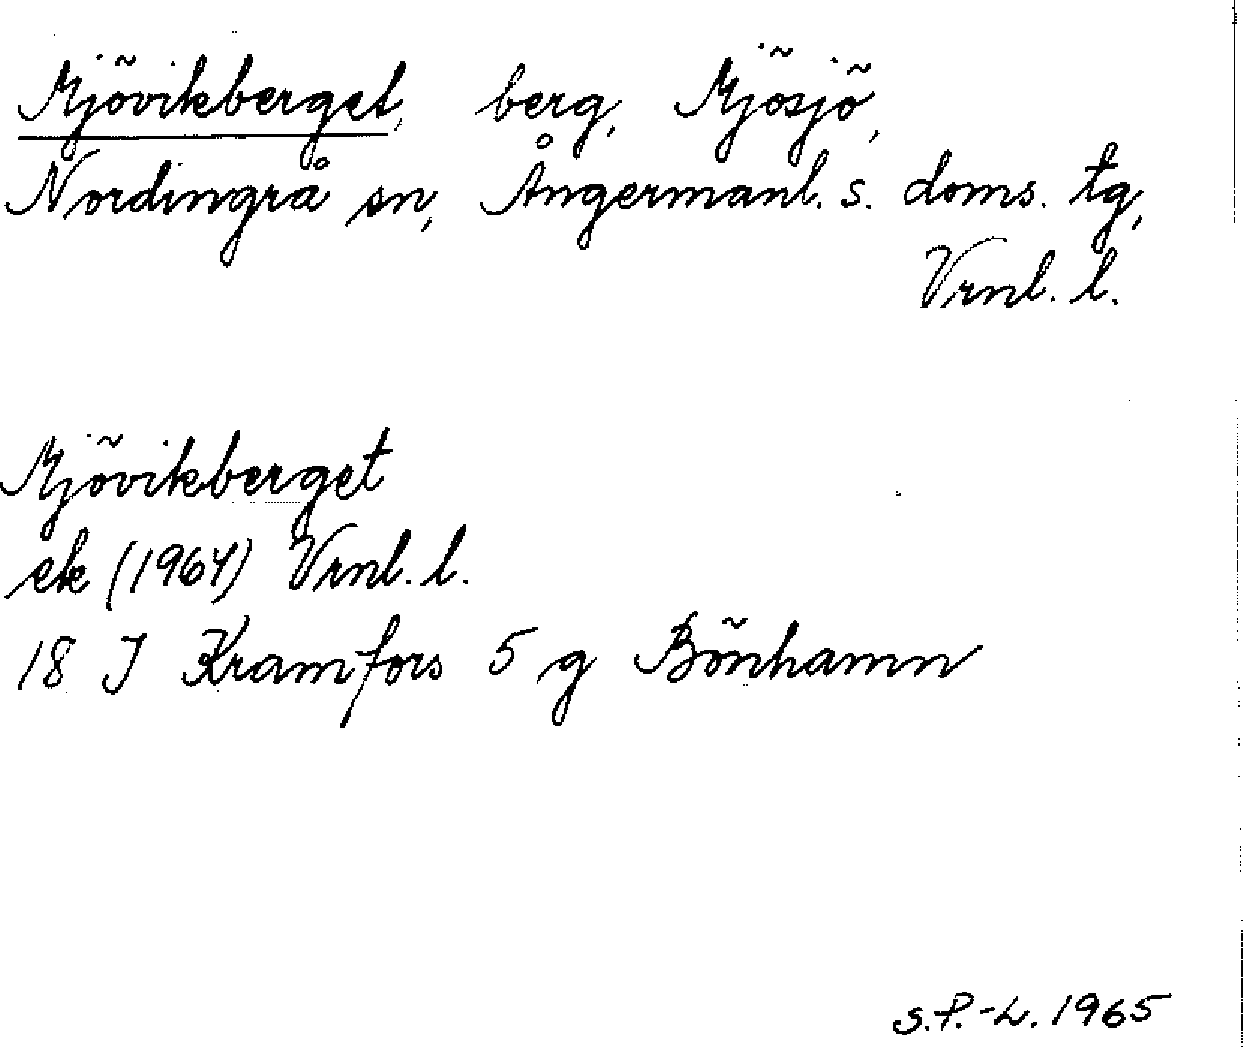 Mjövikberget, berg, Mjösjö,
Nordingrå sn, Ångermanl. s. doms. tg,
Vrnl. l.
Mjövikberget
ek (1964) Vrnl. l.
18 J Kramfors 5 g Bönhamn
S.P.-L. 1965